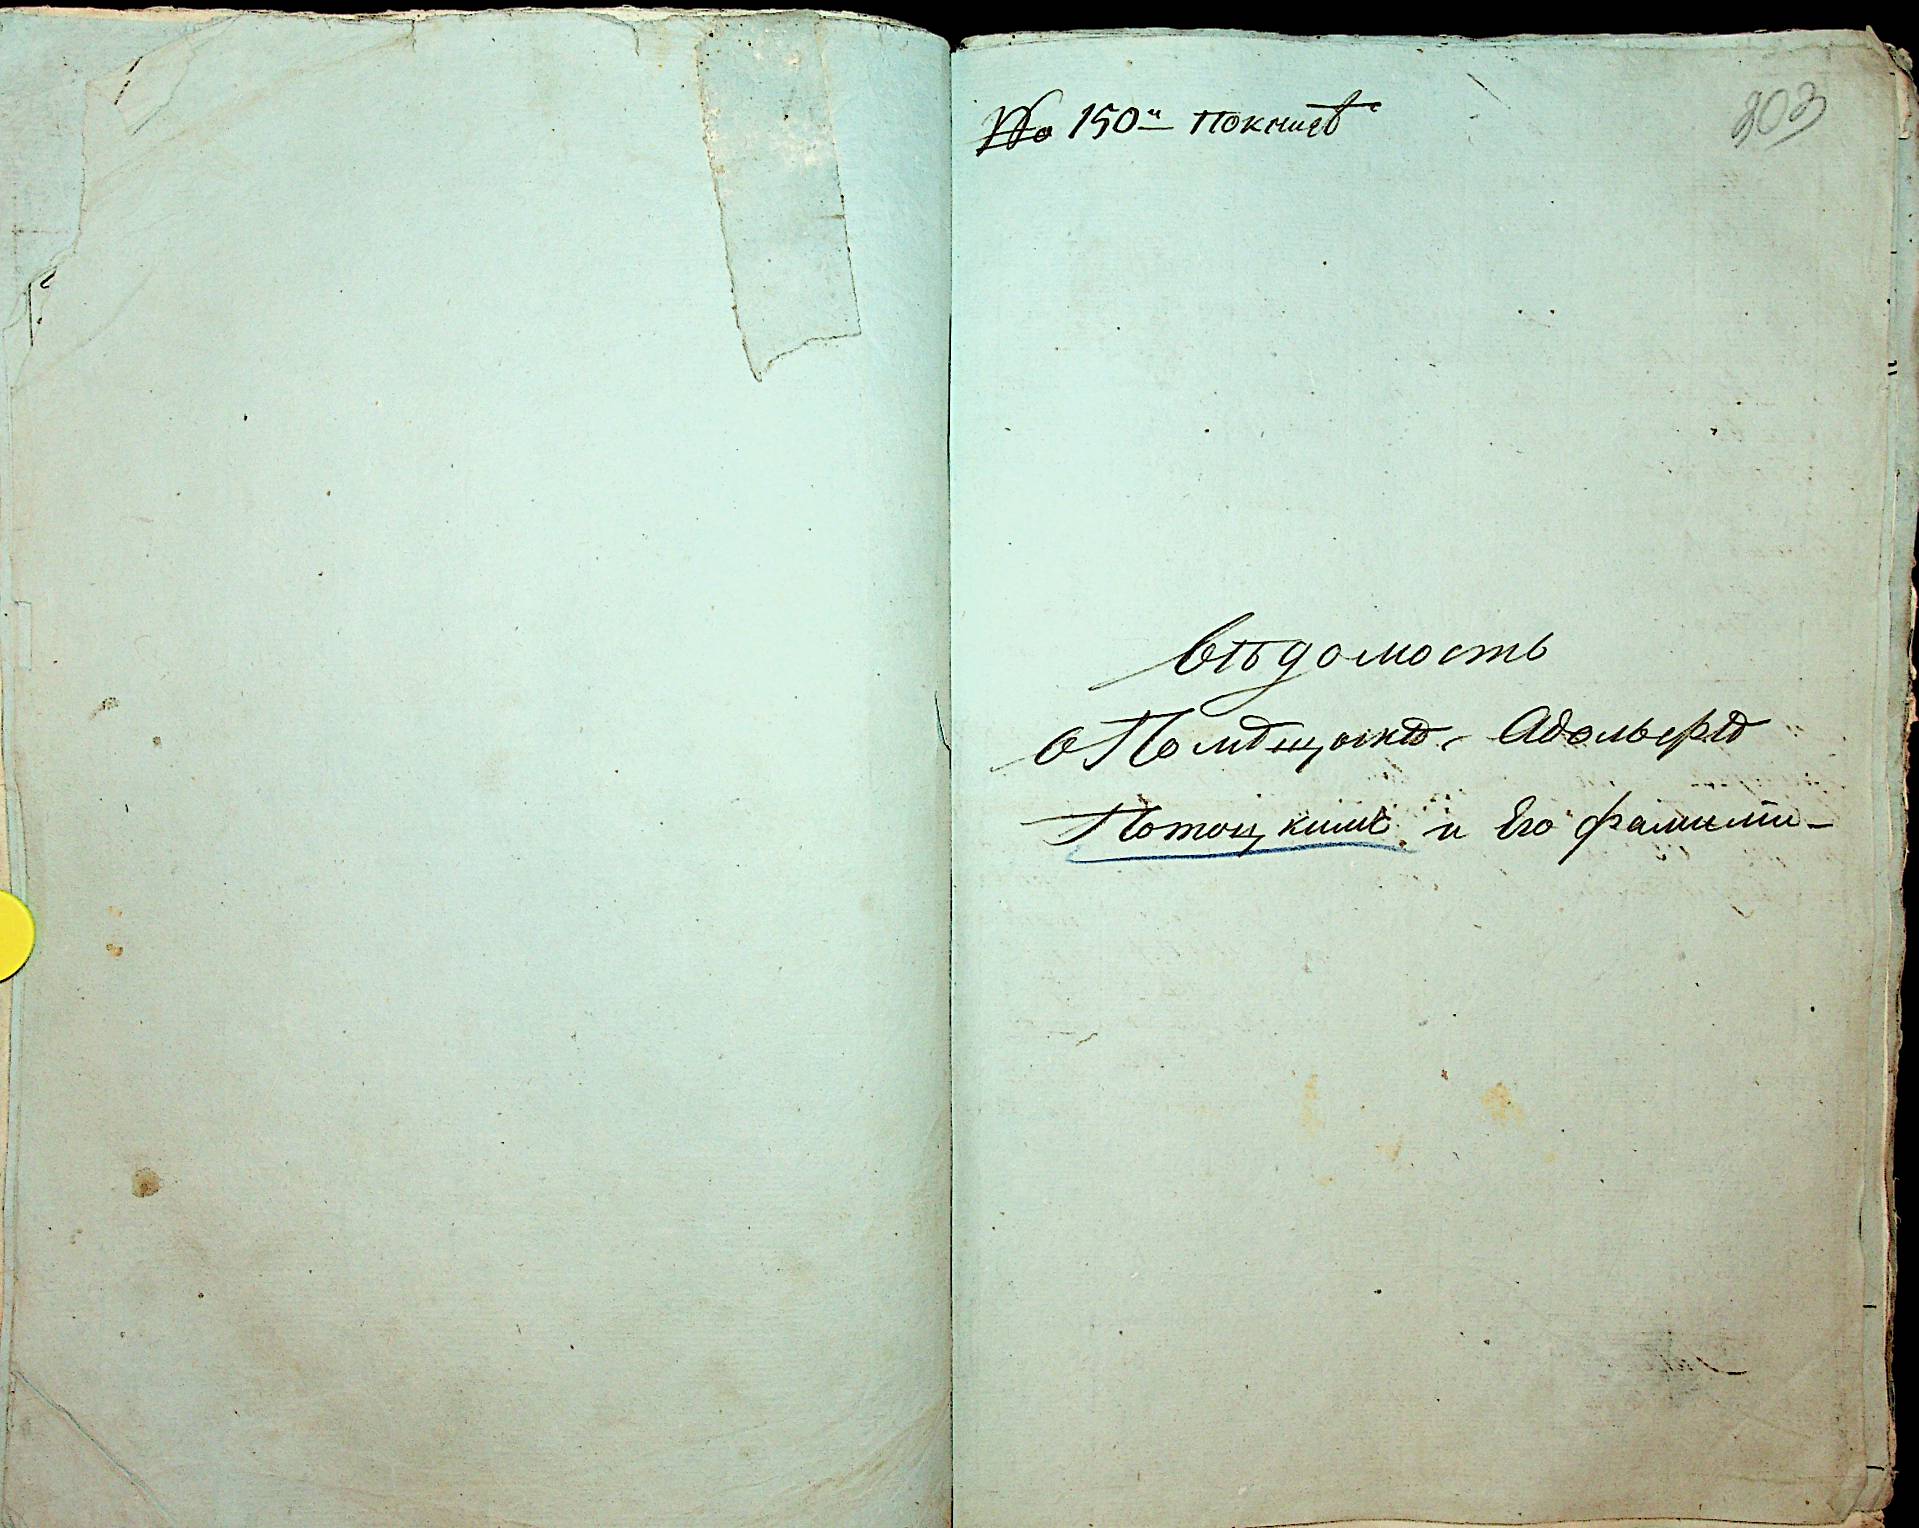 № 150й По книгѣ
203
Вѣдомость
О Помѣщикѣ Адольфѣ
Потоцкимъ и Его фамилiи